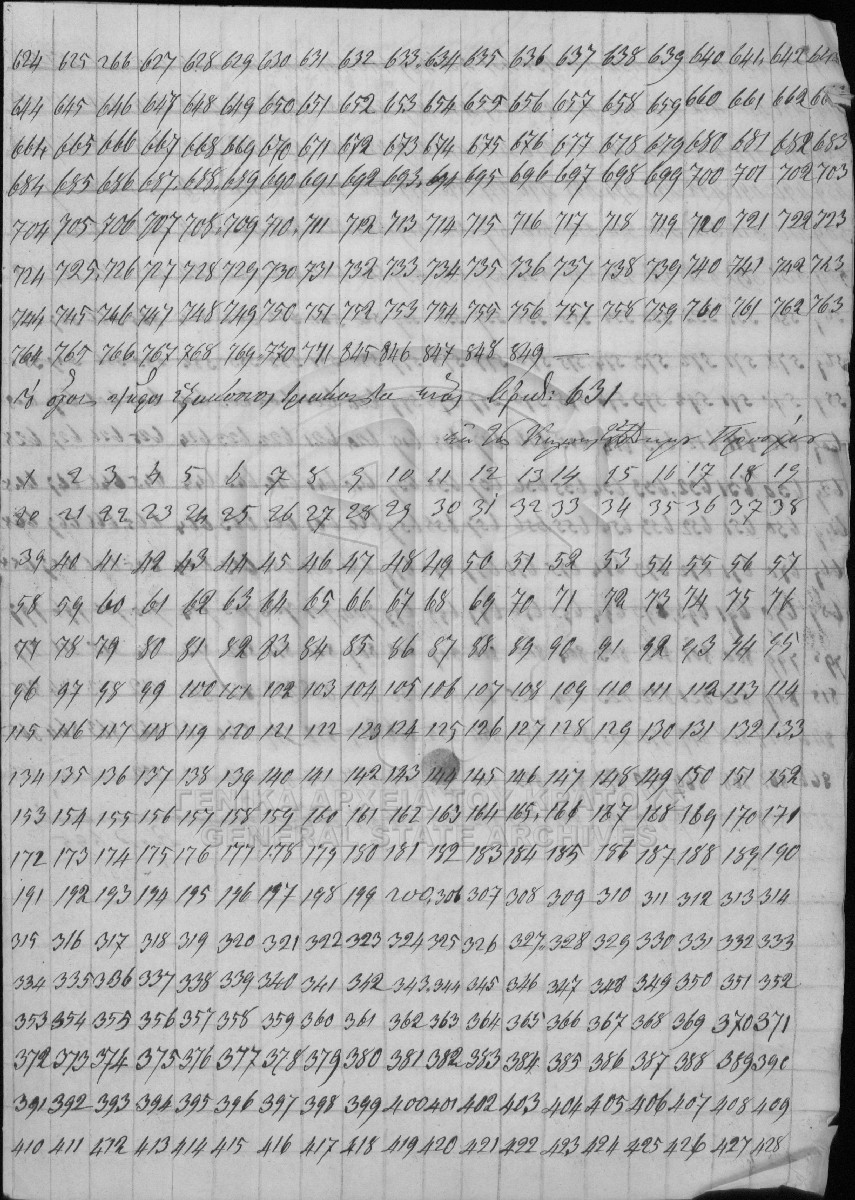 624 625 266 627 628 629 630 631 632 633 634 635 636 637 638 639 640 641 642 643
644 645 646 647 648 649 650 651 652 653 654 655 656 657 658 659 660 661 662
664 665 666 667 668 669 670 671 672 673 674 675 676 677 678 679 680 681 682 683
684 685 686 687 688 689 690 691 692 693 694 695 696 697 698 699 700 701 702 703
704 705 706 707 708 709 710 711 712 713 714 715 716 717 718 719 720 721 722 723
724 725 726 727 728 729 730 731 732 733 734 735 736 737 738 739 740 741 742 743
744 745 746 747 748 749 750 751 752 753 754 755 756 757 758 759 760 761 762 763
764 765 766 767 768 769 770 771 845 846 847 848 849 —
ψήφοι εξακόσιοι τριάκοντα Αριθ: 631
2 3 4 5 6 7 8 9 10 11 12 13 14 15 16 17 18 19
20 21 22 23 24 25 26 27 28 29 30 31 32 33 34 35 36 37 38
39 40 41 42 43 44 45 46 47 48 49 50 51 52 53 54 55 56 57
58 59 60 61 62 63 64 65 66 67 68 69 70 71 72 73 74 75 76
77 78 79 80 81 82 83 84 85 86 87 88 89 90 91 92 93 94 95
96 97 98 99 100 101 102 103 104 105 106 107 108 109 110 111 112 113 114
115 116 117 118 119 120 121 122 123 124 125 126 127 128 129 130 131 132 133
134 135 136 137 138 139 140 141 142 143 144 145 146 147 148 149 150 151 152
ΓΕΝΙΚΑ ΑΡΧΕΙΑ ΤΟΥ ΚΡΑΤΟΥΣ
153 154 155 156 157 158 159 160 161 162 163 164 165 166 167 168 169 170 171
GENERAL STATE ARCHIVES
172 173 174 175 176 177 178 179 180 181 182 183 184 185 186 187 188 189 190
191 192 193 194 195 196 197 198 199 200 306 307 308 309 310 311 312 313 314
315 316 317 318 319 320 321 322 323 324 325 326 327 328 329 330 331 332 333
334 335 336 337 338 339 340 341 342 343 344 345 346 347 348 349 350 351 352
353 354 355 356 357 358 359 360 361 362 363 364 365 366 367 368 369 370 371
372 373 374 375 376 377 378 379 380 381 382 383 384 385 386 387 388 389 390
391 392 393 394 395 396 397 398 399 400 401 402 403 404 405 406 407 408 409
410 411 412 413 414 415 416 417 418 419 420 421 422 423 424 425 426 427 428